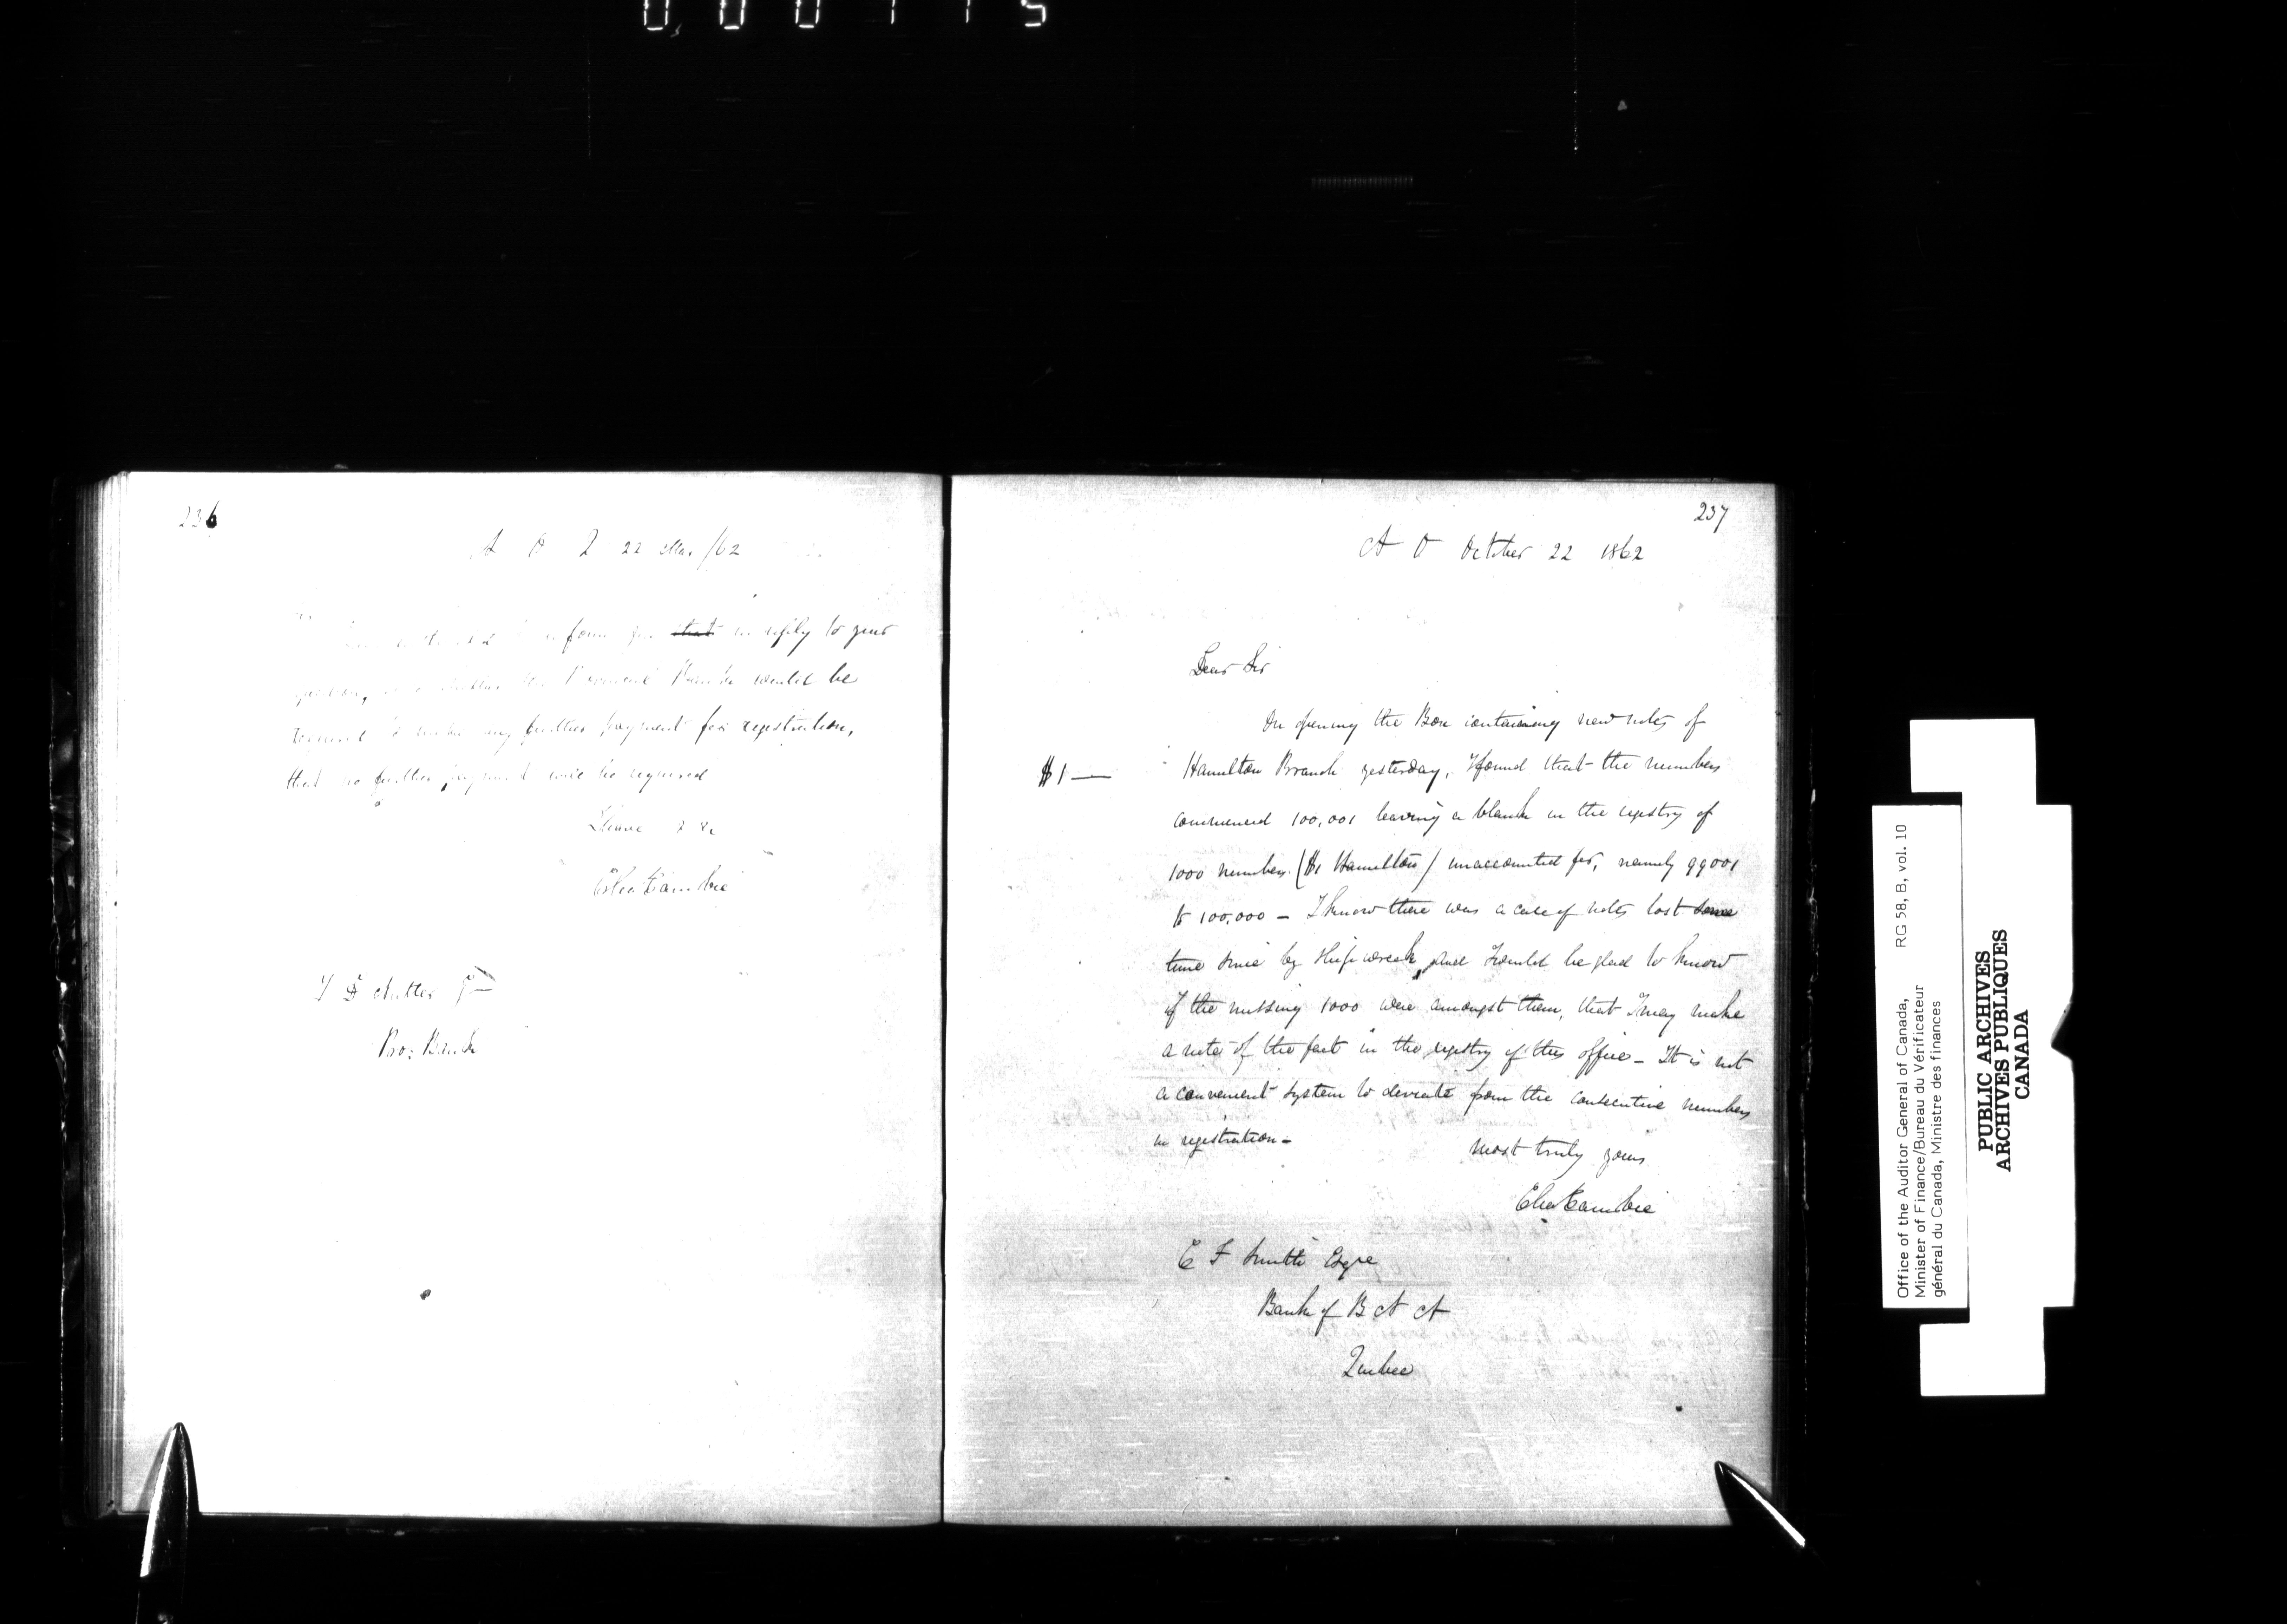 000115
236
A O Q 22 Mar /62
form you that in reply to your
Bank would be
required to make any further payment for registration,
that no further payment will be required
I have &c
Cha Cambie
Bro: Bank
237
A O October 22 1862
Dear Sir
On opening the Box containing new notes of
$1 — Hamilton Branch yesterday, I found that the numbers
commenced 100,001 leaving a blank in the registry of
1000 numbers. ($1 Hamilton) unaccounted for, namely 99001
to 100,000 — I know there was a case of notes lost some
time since by Shipwreck, and I would be glad to know
if the missing 1000 were amongst them, that I may make
a note of the fact in the registry of this office — It is not
a convenient system to deviate from the consecutive numbers
in registration —
most truly yours
Cha Cambie
C F Smith Esqre
Bank of B N A
Quebec
Office of the Auditor General of Canada, RG 58, B, vol. 10
Minister of Finance/Bureau du Vérificateur
général du Canada, Ministre des finances
PUBLIC ARCHIVES
ARCHIVES PUBLIQUES
CANADA